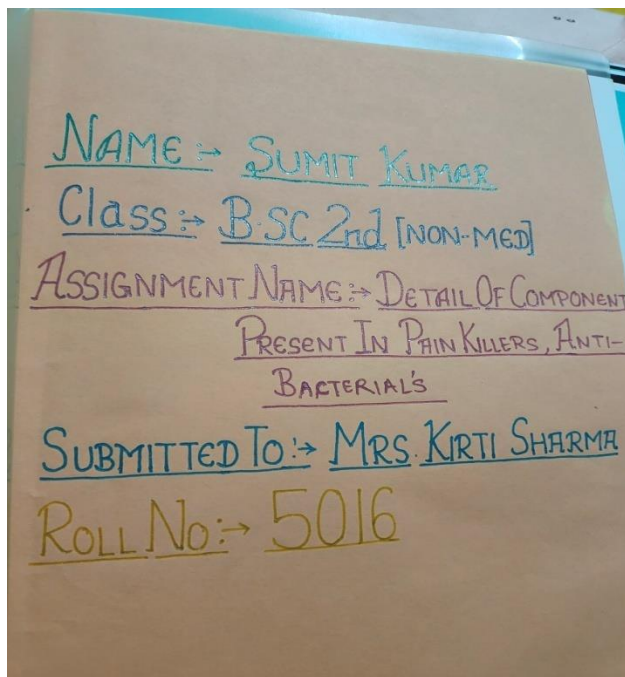 NAME:→ SUMIT KUMAR
Class:→ B.SC 2nd [NON-MED]
ASSIGNMENT NAME:→ DETAIL OF COMPONENT
PRESENT IN PAIN KILLERS, ANTI-
BACTERIAL'S
SUBMITTED TO:→ MRS. KIRTI SHARMA
ROLL NO:→ 5016